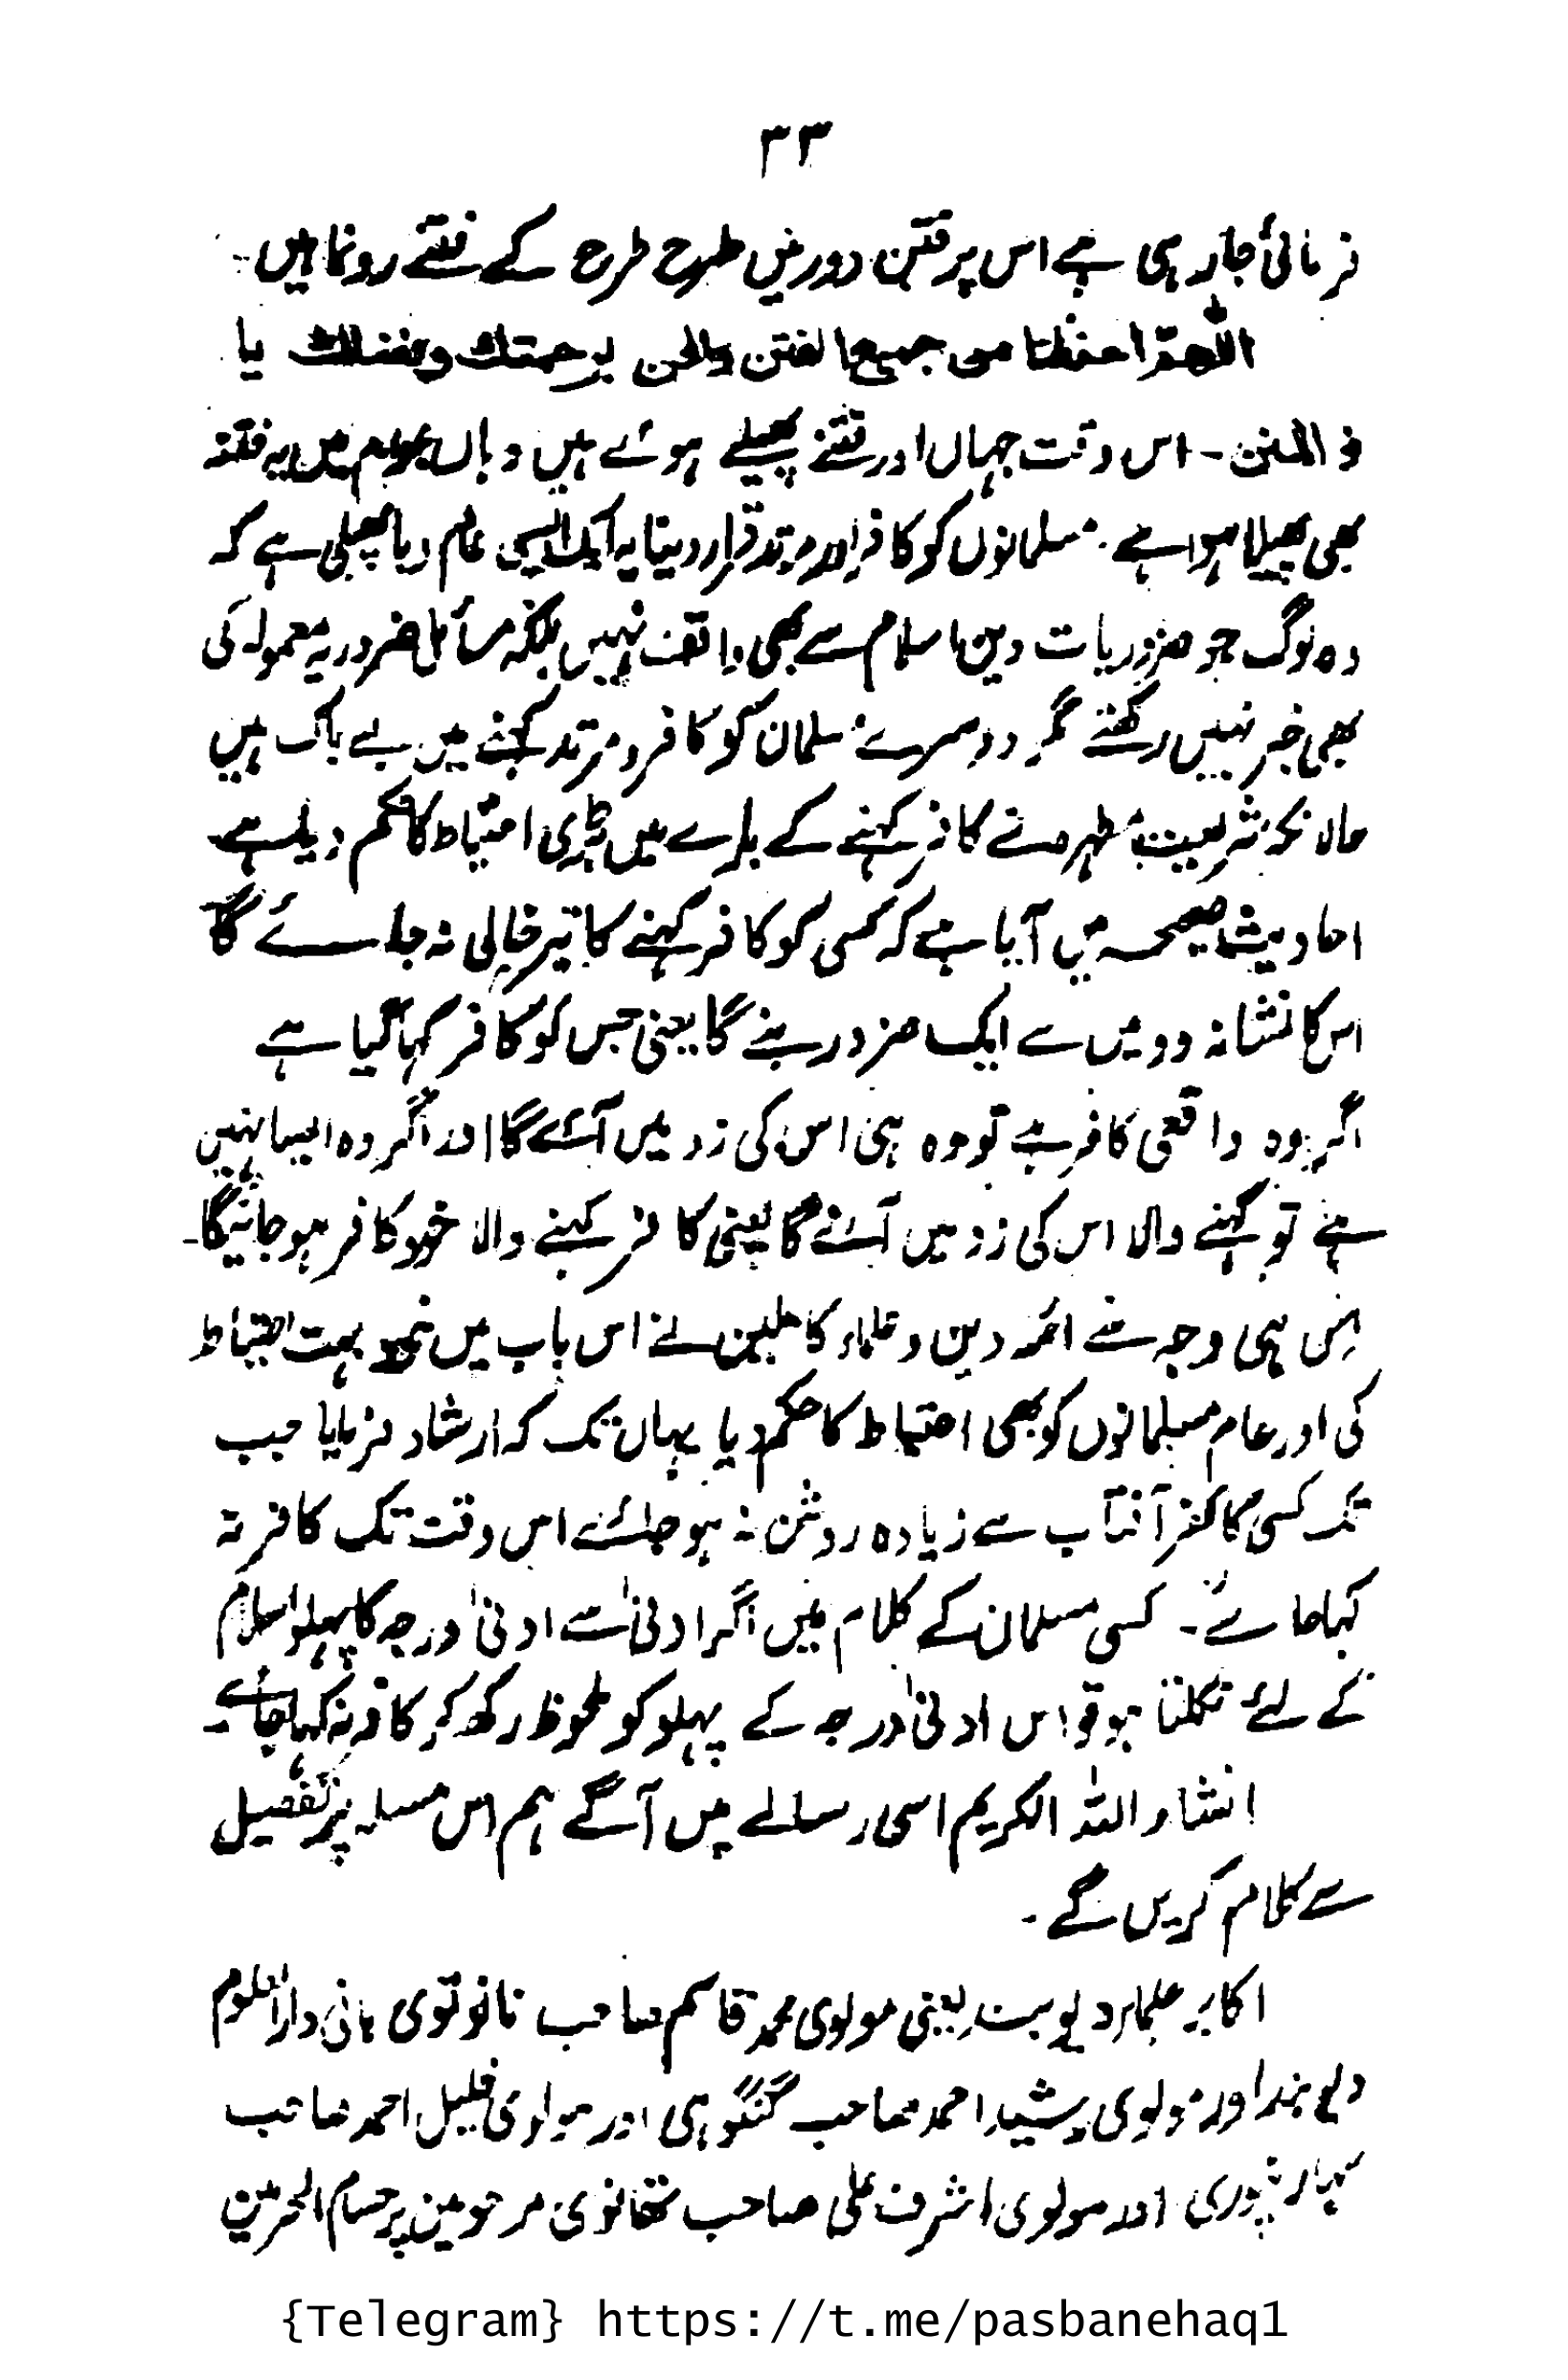 ۳۳
فرمائی جا رہی ہے اس پر فتن دور میں طرح طرح کے فتنے رونما ہیں۔
اللھم احفظنا من جمیع الفتن والمحن برحمتك وبفضلك یا
ذ المنن ۔ اس وقت جہاں اور فتنے پھیلے ہوئے ہیں وہاں عوام میں یہ فتنہ
بھی پھیلا ہوا ہے۔ مسلمانوں کو کافر اور مرتد قرار دینا یہ ایک ایسی عام وبا پھیلی ہے کہ
وہ لوگ جو ضروریات دین اسلام سے بھی واقف نہیں بلکہ مسائل ضروریہ معمولہ کی
بھی خبر نہیں رکھتے مگر دوسرے مسلمان کو کافر و مرتد کہنے میں بے باک ہیں
حالانکہ شریعت مطہرہ نے کافر کہنے کے بارے میں بڑی احتیاط کا حکم دیا ہے
احادیث صحیحہ میں آیا ہے کہ کسی کو کافر کہنے کا تیر خالی نہ جائے گا
اس کا نشانہ دو میں سے ایک ضرور بنے گا یعنی جس کو کافر کہا گیا ہے
اگر وہ واقعی کافر ہے تو وہ ہی اس کی زد میں آئے گا اور اگر وہ ایسا نہیں
ہے تو کہنے والا اس کی زد میں آئے گا یعنی کافر کہنے والا خود کافر ہو جائیگا۔
اس ہی وجہ سے ائمہ دین و علماء کاملین نے اس باب میں خود بہت احتیاط
کی اور عام مسلمانوں کو بھی احتیاط کا حکم دیا یہاں تک کہ ارشاد فرمایا جب
تک کسی کا کفر آفتاب سے زیادہ روشن نہ ہو جائے اس وقت تک کافر نہ
کہا جائے۔ کسی مسلمان کے کلام میں اگر ادنیٰ سے ادنیٰ درجہ کا پہلو اسلام
کے لئے نکلتا ہو تو اس ادنیٰ درجہ کے پہلو کو ملحوظ رکھ کر کافر نہ کہا جائے۔
انشاء اللہ الکریم اسی رسالے میں آگے ہم اس مسلہ پر تفصیل
سے کلام کریں گے۔
اکابر علماء دیوبند یعنی مولوی محمد قاسم صاحب نانوتوی بانی دارالعلوم
دیوبند اور مولوی رشید احمد صاحب گنگوہی اور مولوی خلیل احمد صاحب
سہارنپوری اور مولوی اشرف علی صاحب تھانوی مرحومین پر حسام الحرمین
{Telegram} https://t.me/pasbanehaq1